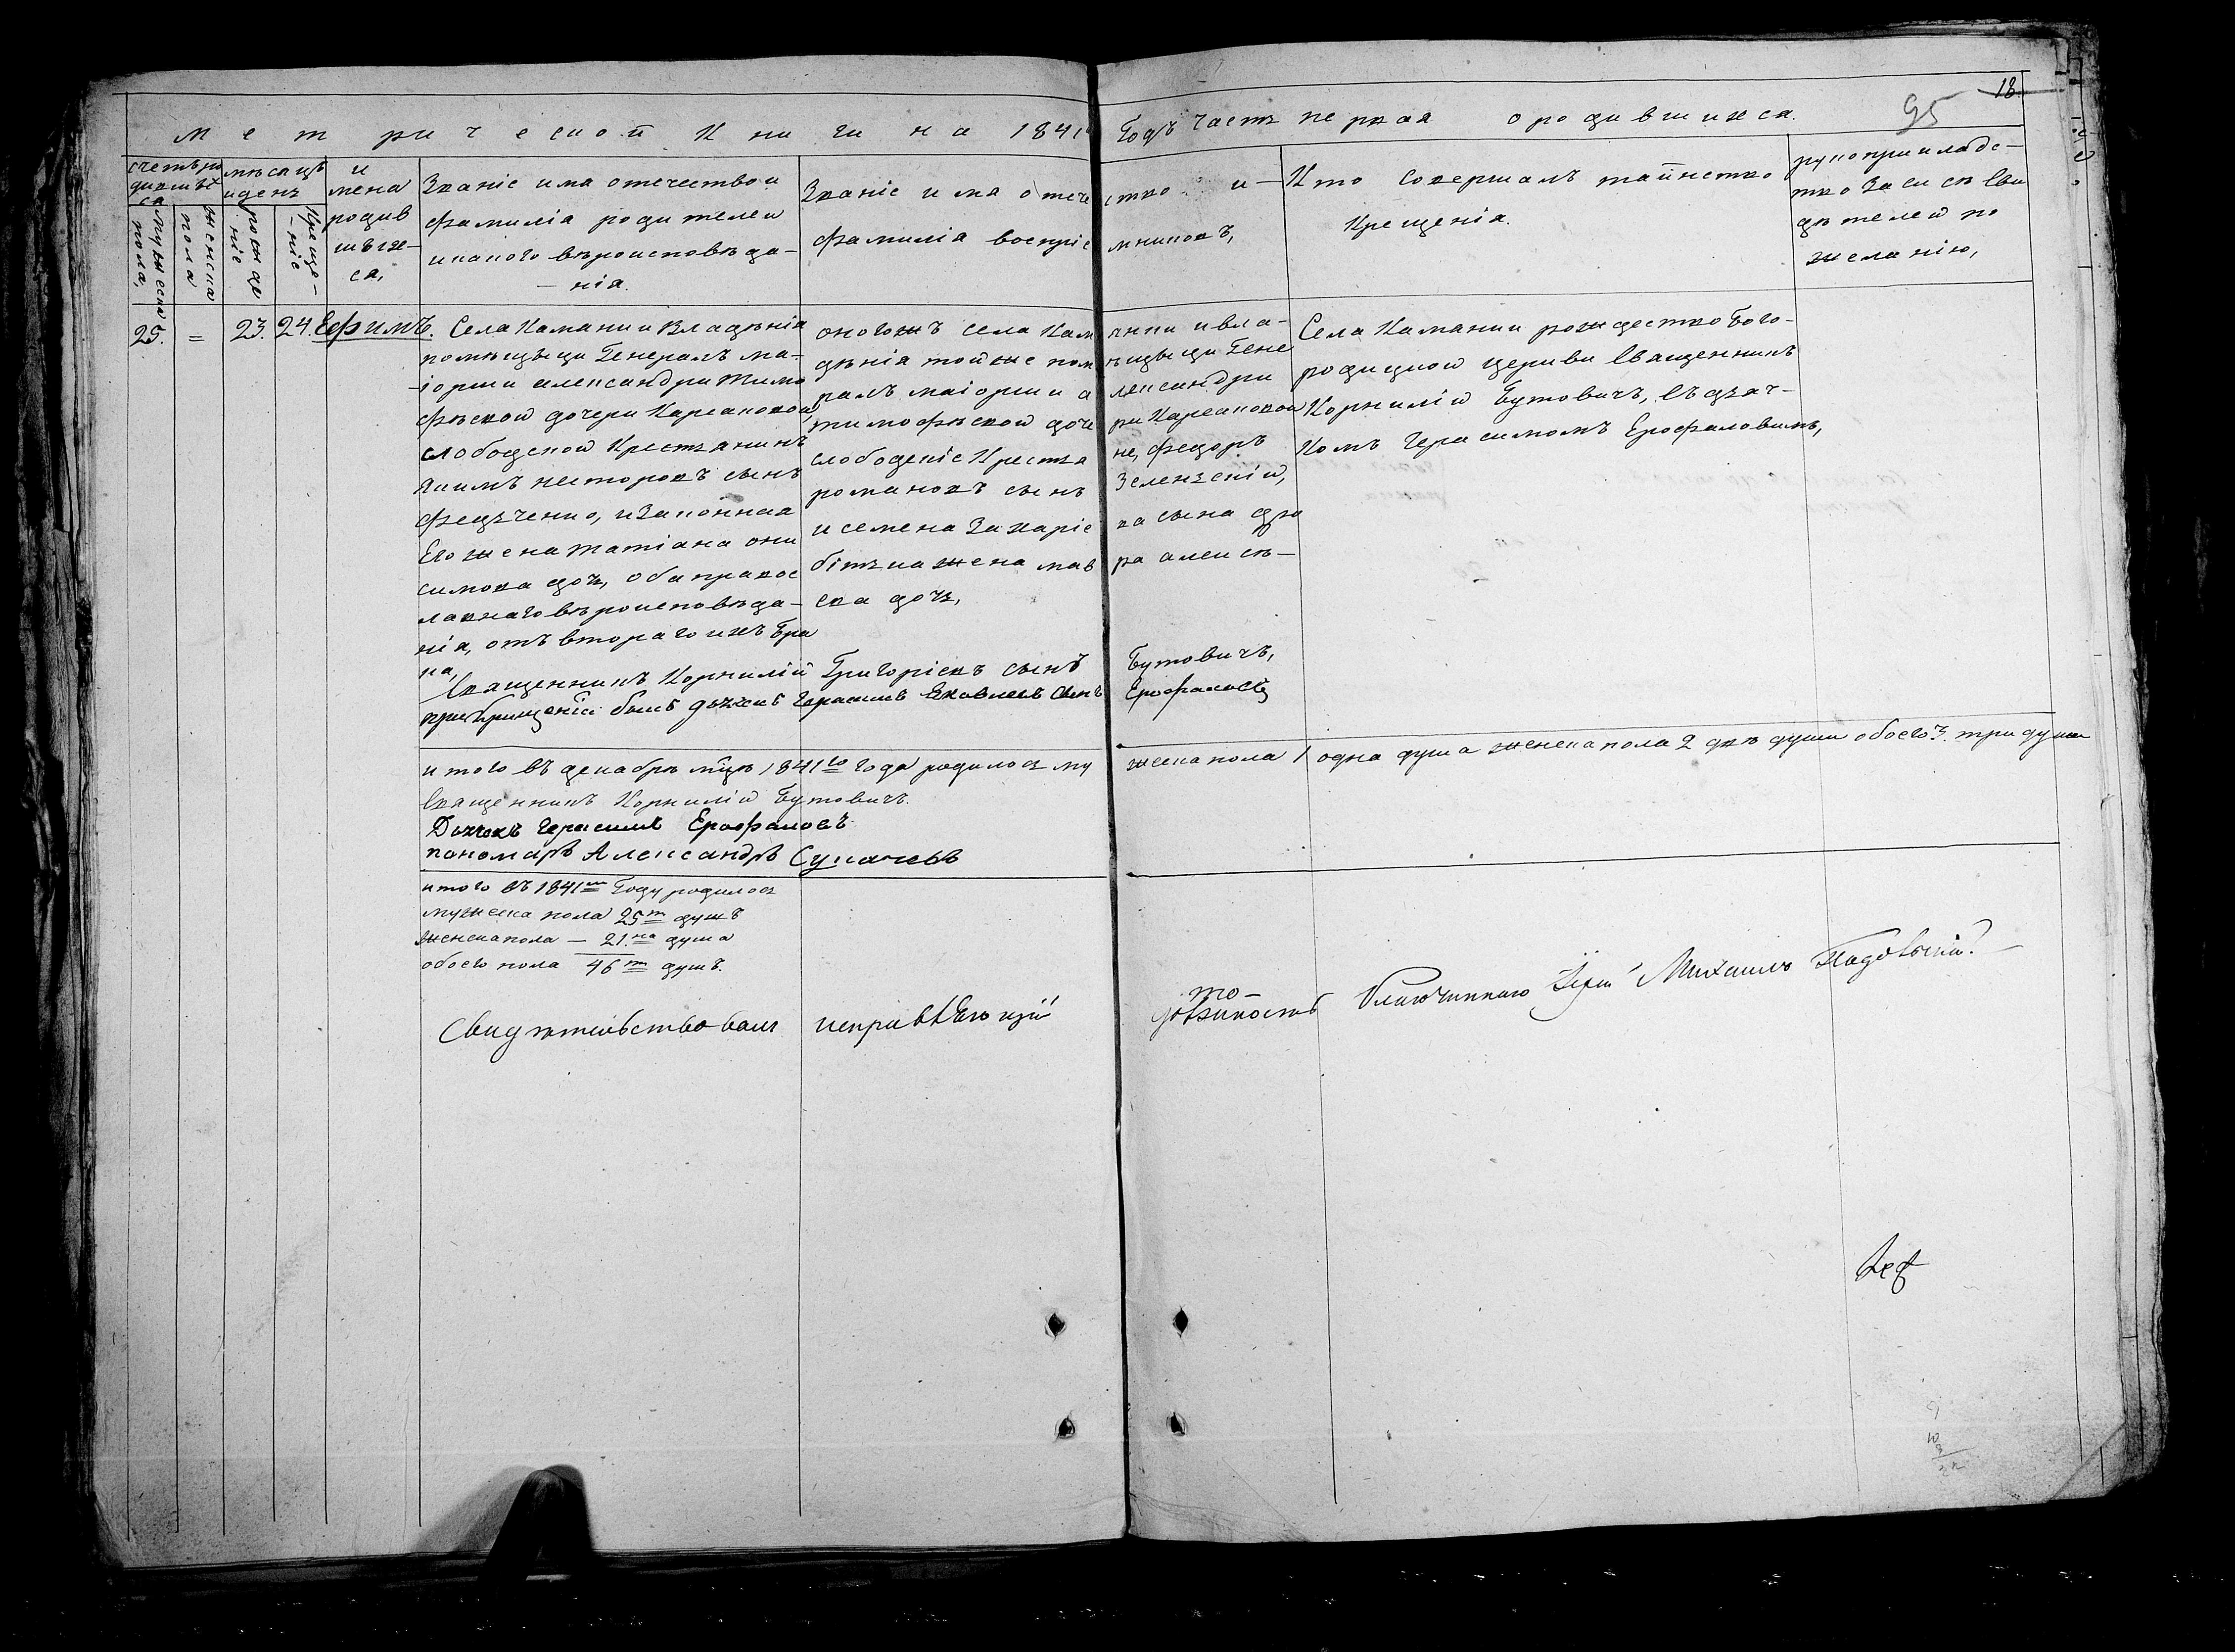 Метрической Книги на 1841й Годъ часть первая о родившихся.
18.
95
счетъ родившихся
мужеска пола,
женска пола
мѣсяцъ и день
рожденіе
крещеніе
имена родившихся,
Званіе имя отечество и
фамиліа родителей
и какого вѣроисповѣда-
-ніа.
Званіе има отечество и-
фамиліа воспріемниковъ,
Кто совершалъ таинство
Крещеніа.
рукоприкладс-
тво записѣ сви
дѣтелей по
желанію,
25.
=
23.
24.
Ефимъ.
Села Камянки владѣніа
помѣщыци Генералъ ма-
-іорши александри тимо
фѣевой дочери Карсаковой,
слободской Крестьянинъ
Якимъ несторовъ сынъ
федьченко, и законнаа
Его жена татіана они
симова дочь, оба правос
лавнаго вѣроисповѣда-
ніа, отъ втораго ихъ бра
ка,
оногожъ села Камянки и вла-
дѣніа тойже помѣщыци Гене
ралъ маіорши александри
тимофѣевой дочери Карсаковой
слободскіе Крестьяне, федоръ
романовъ сынъ Зеленскій,
и семена захаріева сына
жена мавра алексѣ-
ева дочь,
Села Камянки рождество Бого-
родицкой церкви Священникъ
Корнилій Бутовичъ, съ дьяч-
комъ Герасимомъ Ерофаловимъ,
Священникъ Корнилій Григоріевъ сынъ Бутовичъ,
при крещеніи былъ дьячекъ Герасимъ Яковлевъ сынъ Ерофаловъ
итого въ декабрѣ мцѣ 1841го года родилось мужеска пола 1 одна душа женска пола 2 двѣ души обоего 3. три души
Священникъ Корнилій Бутовичъ.
Дьячокъ Герасимъ Ерофаловъ
пономарь Александръ Сукачевъ
итого въ 1841м Году родилось
мужеска пола 25ть душъ
женска пола — 21.на душа
обоего пола 46ть душъ.
Свидѣтельствовалъ исправляющій должность благочиннаго Іерей Михаилъ